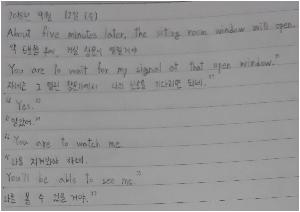 About five minutes later, the sitting room window will open.
약 5분쯤 후에, 거실 창문이 열릴거야
You are to wait for my signal at that open window."
자네는 그 열린 창문에서 나의 신호를 기다리면 되네."
"Yes."
"알았어."
"You are to watch me.
"나를 지켜봐야 하네.
You'll be able to see me."
나를 볼 수 있을 거야."